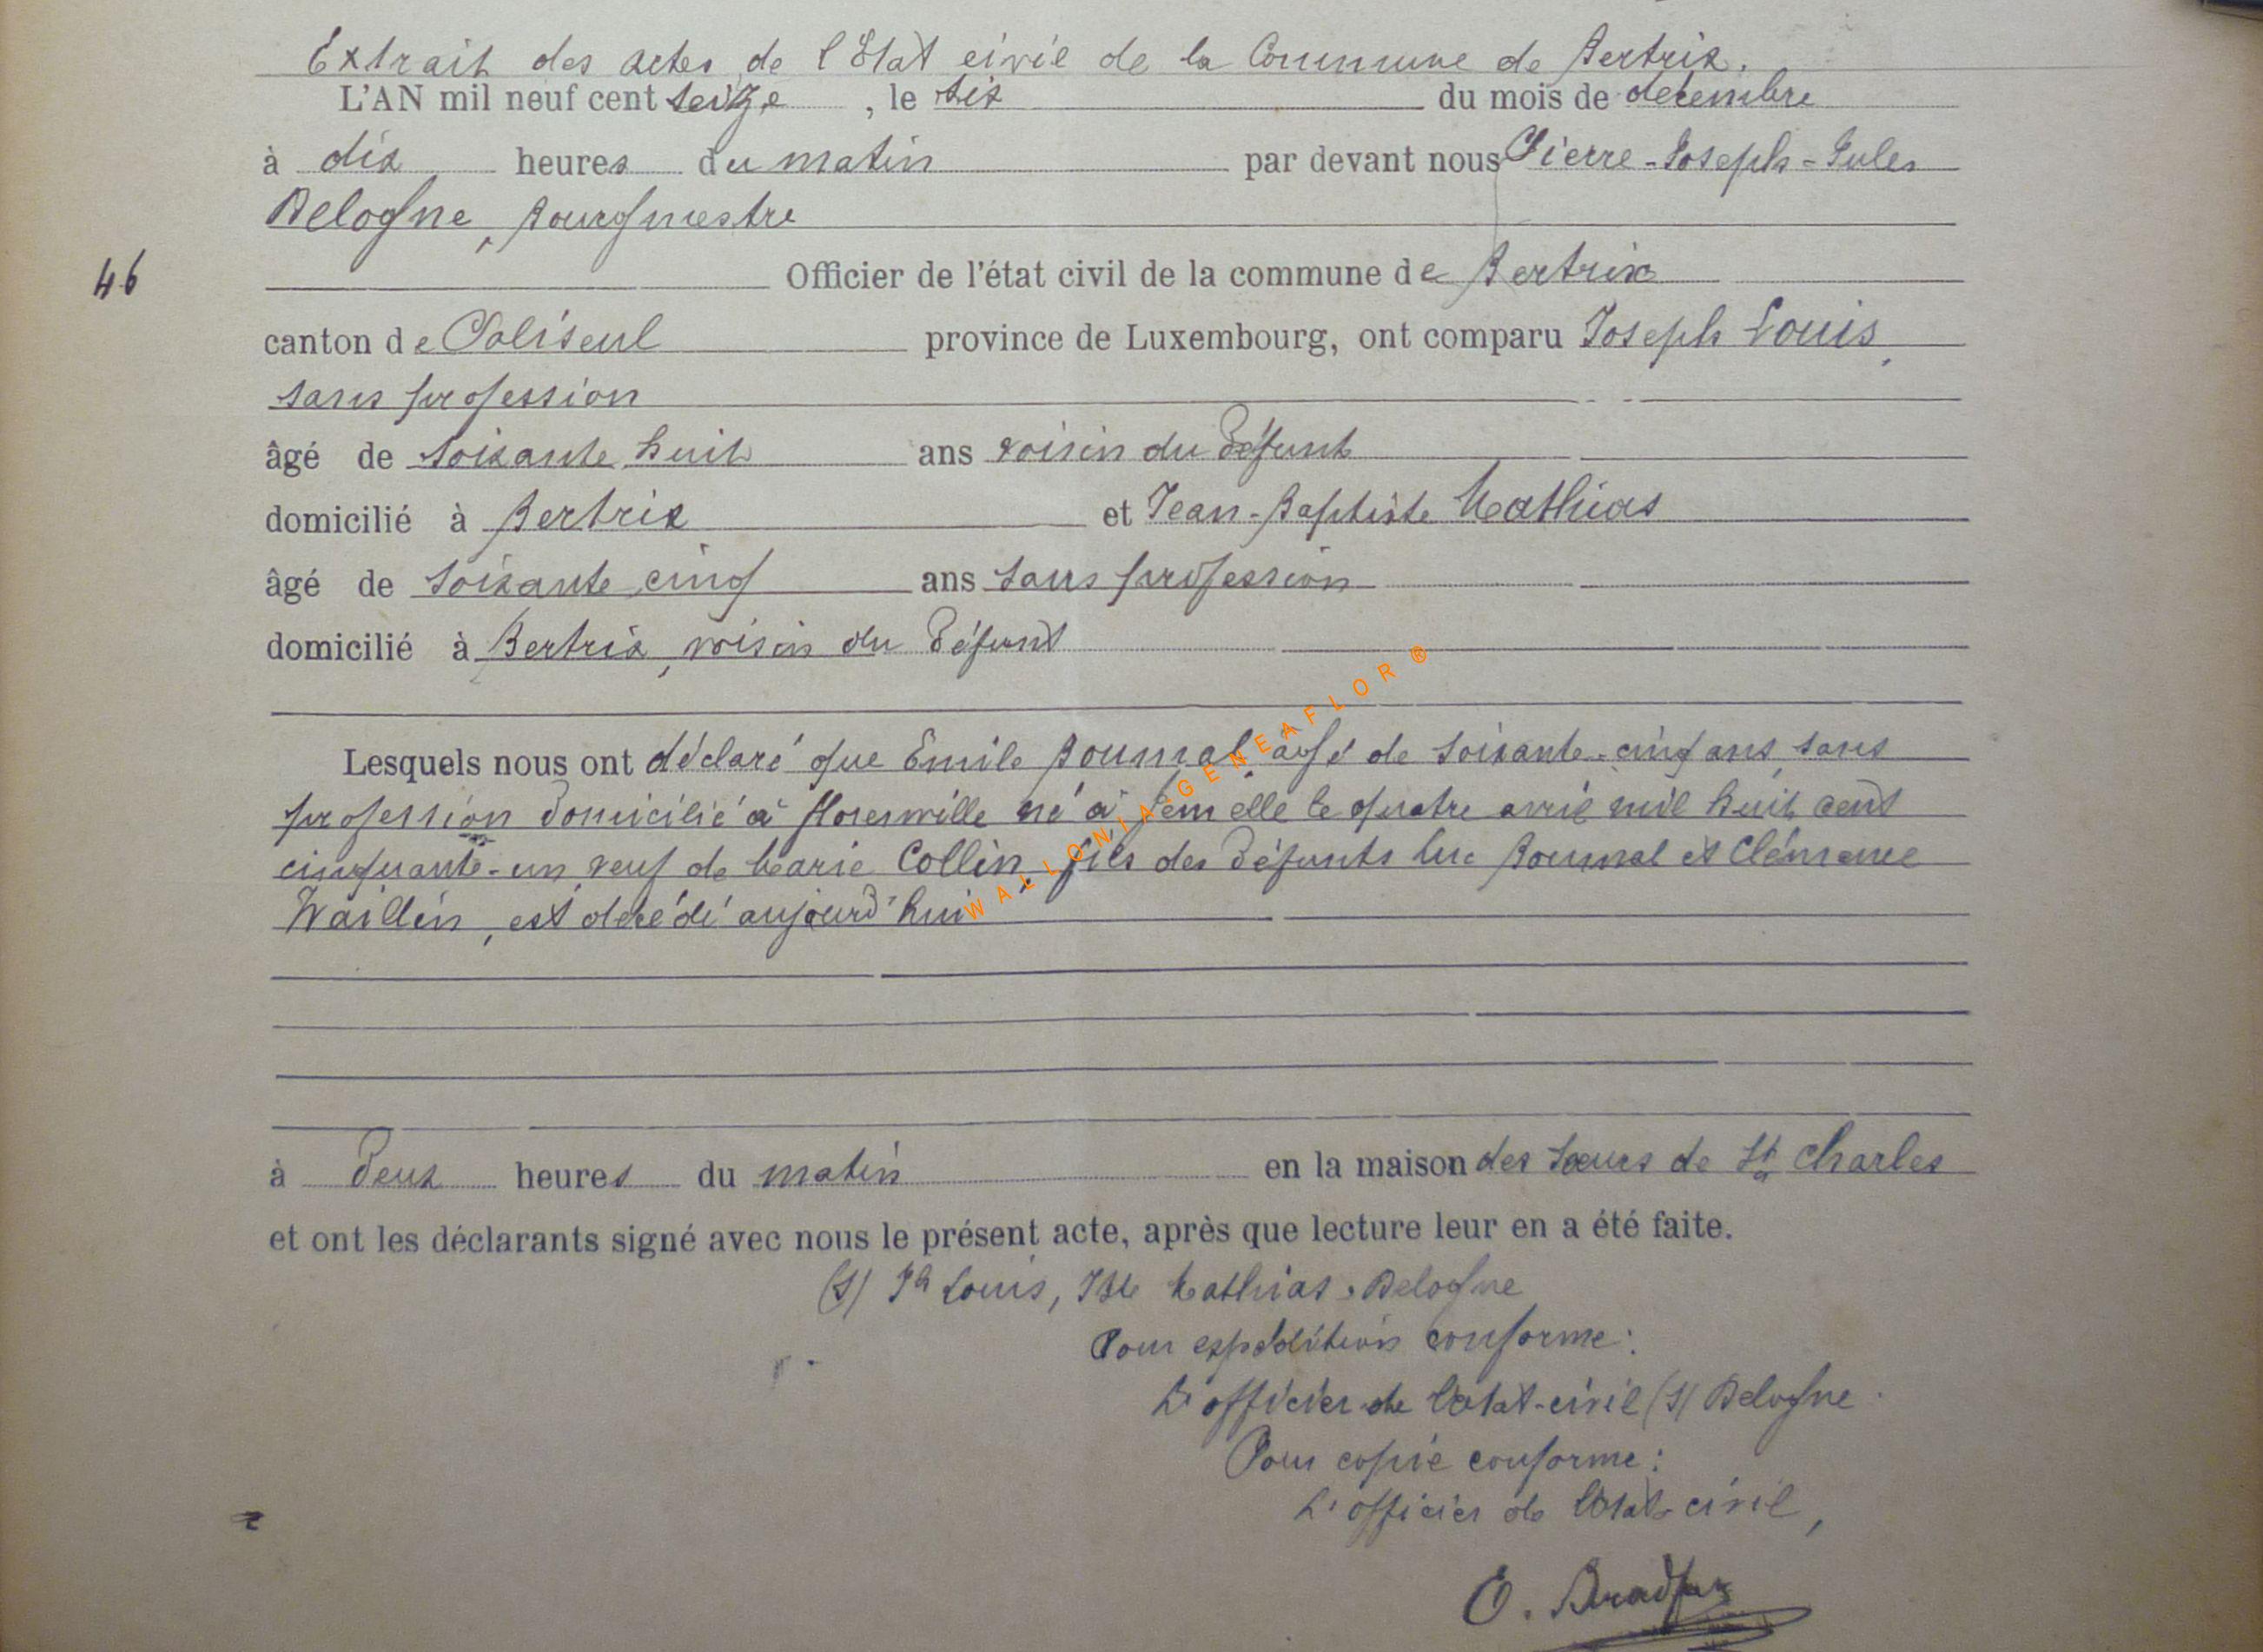 Extrait des actes de l'Etat civil de la Commune de Bertrix.
L'AN mil neuf cent seize, le six du mois de décembre
à dix heures du matin par devant nous Pierre-Joseph-Jules
Delogne, Bourgmestre
46
Officier de l'état civil de la commune de Bertrix
canton de Paliseul province de Luxembourg, ont comparu Joseph Louis,
sans profession
âgé de soixante huit ans voisin du défunt
domicilié à Bertrix et Jean-Baptiste Mathias
âgé de soixante cinq ans sans profession
domicilié à Bertrix, voisin du défunt
Lesquels nous ont déclaré que Emile Pournal, agé de soixante-cinq ans, sans
profession domicilié à Florenville né à Jemelle le quatre avril mil huit cent
cinquante-un, veuf de Marie Collin, fils des défunts Luc Pournal et Clémence
Waillin, est décédé aujourd'hui
WALLONIA-GENEAFLOR ®
à deux heures du matin en la maison des sœurs de St Charles
et ont les déclarants signé avec nous le présent acte, après que lecture leur en a été faite.
(s) Jh Louis, JBte Mathias, Delogne
Pour expédition conforme:
L'officier de l'état-civil (s) Delogne
Pour copie conforme:
L'officier de l'état-civil,